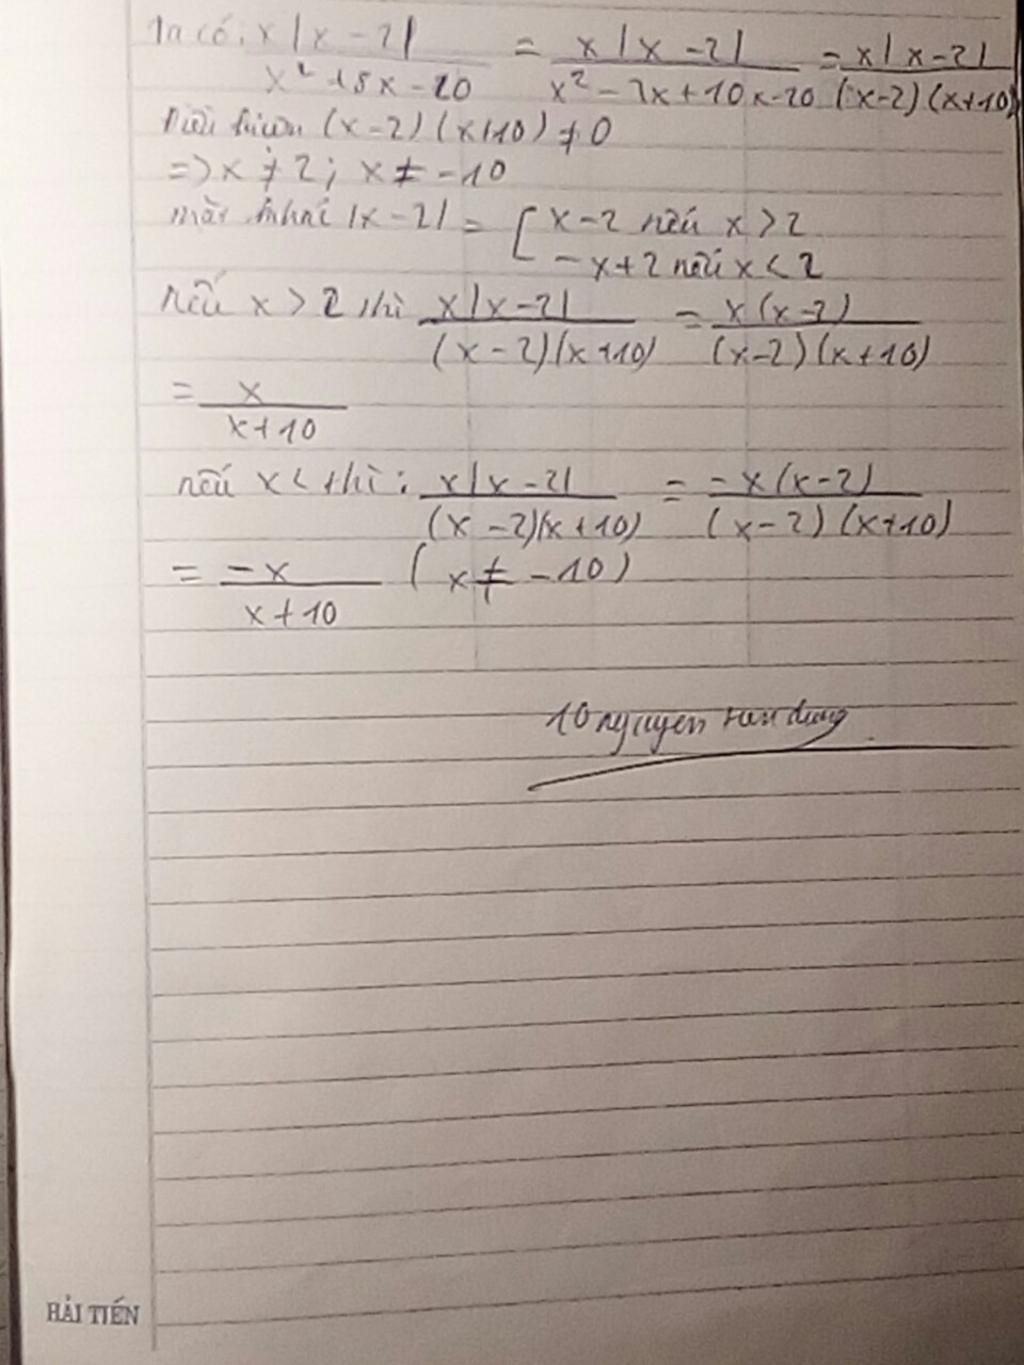 Ta có: x|x-2| / x²+8x-20 = x|x-2| / x²-2x+10x-20 = x|x-2| / (x-2)(x+10)
(x-2)(x+10) ≠ 0
=> x ≠ 2; x ≠ -10
mặt khác |x-2| = [ x-2 nếu x > 2
-x+2 nếu x < 2
nếu x > 2 thì x|x-2| / (x-2)(x+10) = x(x-2) / (x-2)(x+10)
= x / x+10
nếu x < thì: x|x-2| / (x-2)(x+10) = -x(x-2) / (x-2)(x+10)
= -x / x+10 (x ≠ -10)
10 nguyen
HẢI TIẾN